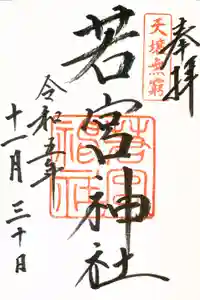 奉拝
天壌無窮
若宮神社
令和五年
十一月三十日